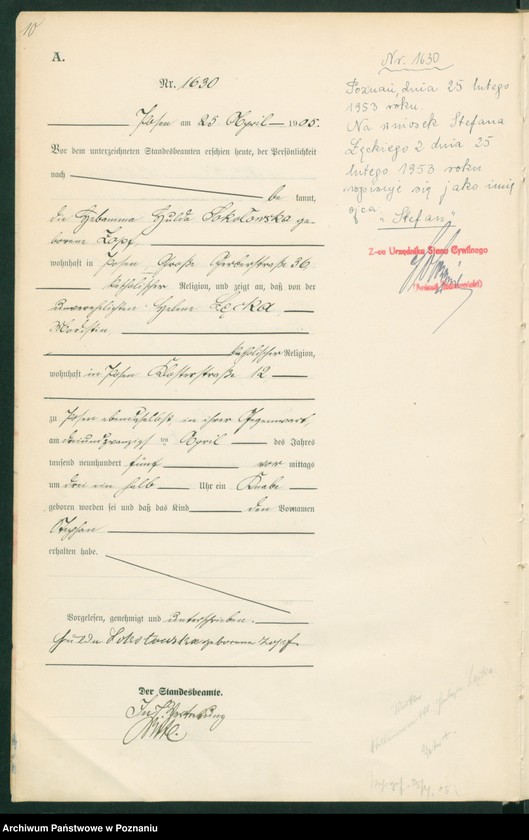 10
A.
Nr. 1630
Posen am 25 April 1905.
Vor dem unterzeichneten Standesbeamten erschien heute, der Persönlichkeit
nach
be kannt,
die Hebamme Hulda Sokolowska ge-
borene Zopf
wohnhaft in Posen, Große Gerberstraße 36
katholischer Religion, und zeigt an, daß von der
unverehelichten Helene Łęcka
Modistin
katholischer Religion,
wohnhaft in Posen Klosterstraße 12
zu Posen ebendaselbst, in ihrer Gegenwart,
am dreiundzwanzigsten April des Jahres
tausend neunhundert fünf vor mittags
um drei ein halb Uhr ein Knabe
geboren worden sei und daß das Kind den Vornamen
Stephan
erhalten habe.
Vorgelesen, genehmigt und unterschrieben.
Hulda Sokolowska geborene Zopf
Der Standesbeamte.
In Vertretung
Nr. 1630
Poznań, dnia 25 lutego
1953 roku.
Na wniosek Stefana
Łęckiego z dnia 25
lutego 1953 roku
wpisuje się jako imię
ojca
"Stefan"
Z-ca Urzędnika Stanu Cywilnego
Archiwum Państwowe w Poznaniu